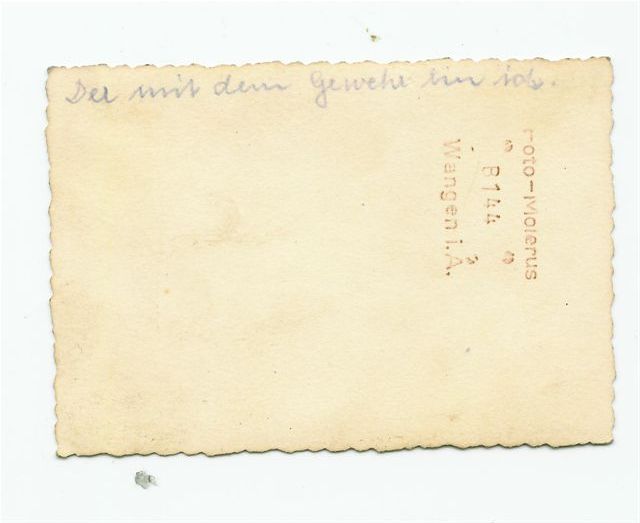 Der mit dem Gewehr bin ich.
Foto-Molerus
8144
Wangen i. A.